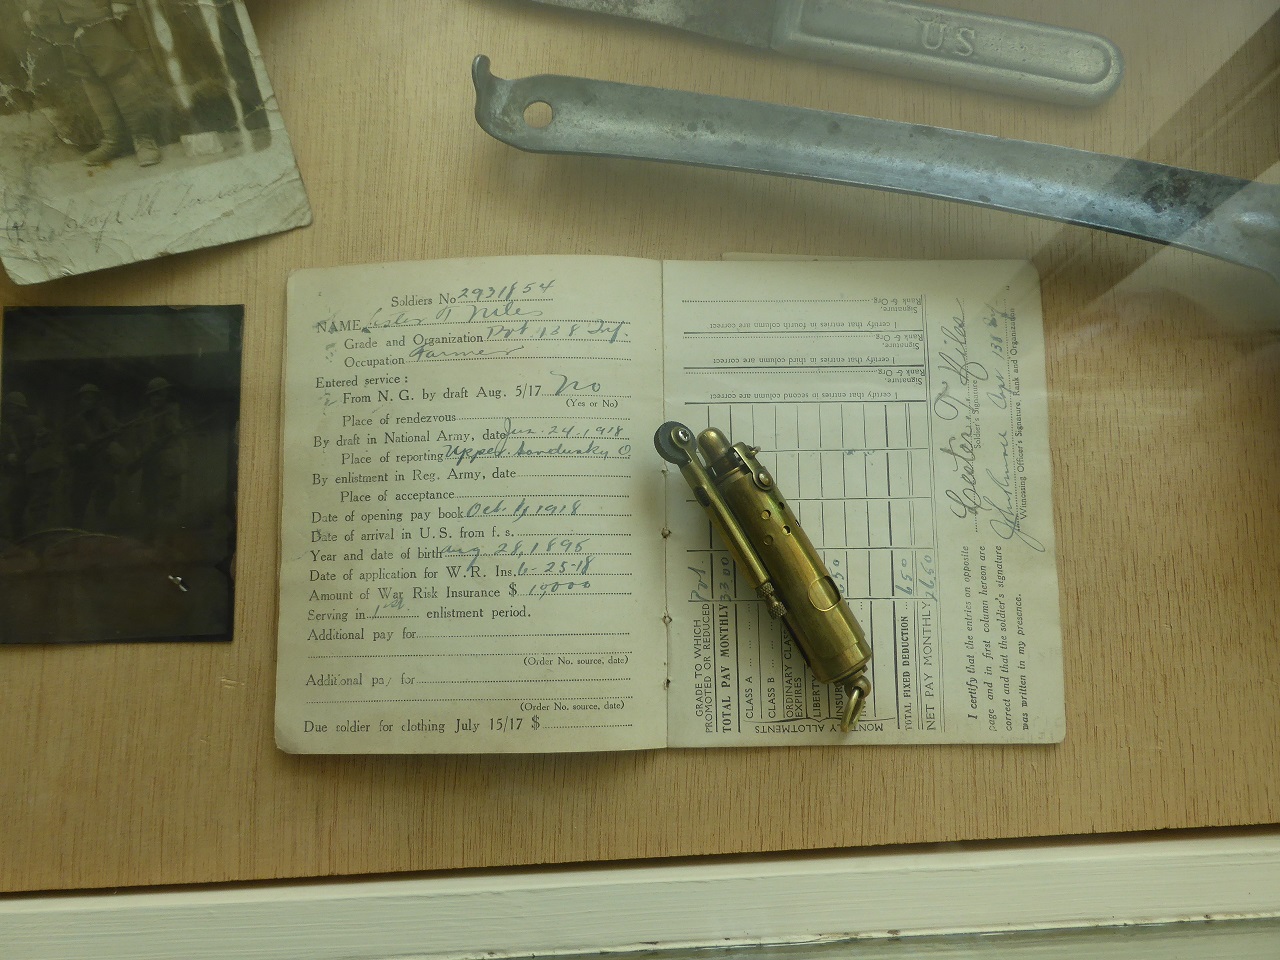 US
Soldiers No 2931854
NAME Lester T Niles
Grade and Organization Pvt 138 Inf.
Occupation Farmer
Entered service:
From N. G. by draft Aug. 5/17 No
(Yes or No)
Place of rendezvous
By draft in National Army, date Jun. 24, 1918
Place of reporting Upper Sandusky O
By enlistment in Reg. Army, date
Place of acceptance
Date of opening pay book Oct. 1, 1918
Date of arrival in U.S. from f. s.
Year and date of birth Aug 28, 1895
Date of application for W.R. Ins. 6-25-18
Amount of War Risk Insurance $ 10,000
Serving in 1st enlistment period.
Additional pay for
(Order No. source, date)
Additional pay for
(Order No. source, date)
Due soldier for clothing July 15/17 $
GRADE TO WHICH
PROMOTED OR REDUCED Pvt
TOTAL PAY MONTHLY 33 00
CLASS A
CLASS B
ORDINARY CLASS
EXPIRES
LIBERTY
INSUR 6 50
MONTHLY ALLOTMENTS
TOTAL FIXED DEDUCTION 6 50
NET PAY MONTHLY 26 50
I certify that entries in second column are correct
Signature.
Rank & Org.
I certify that entries in third column are correct
Signature.
Rank & Org.
I certify that entries in fourth column are correct
Signature.
Rank & Org.
I certify that the entries on opposite
page and in first column hereon are
correct and that the soldier's signature
was written in my presence.
Lester T Niles
Soldier's Signature
Capt 138 Inf
Witnessing Officer's Signature, Rank and Organization